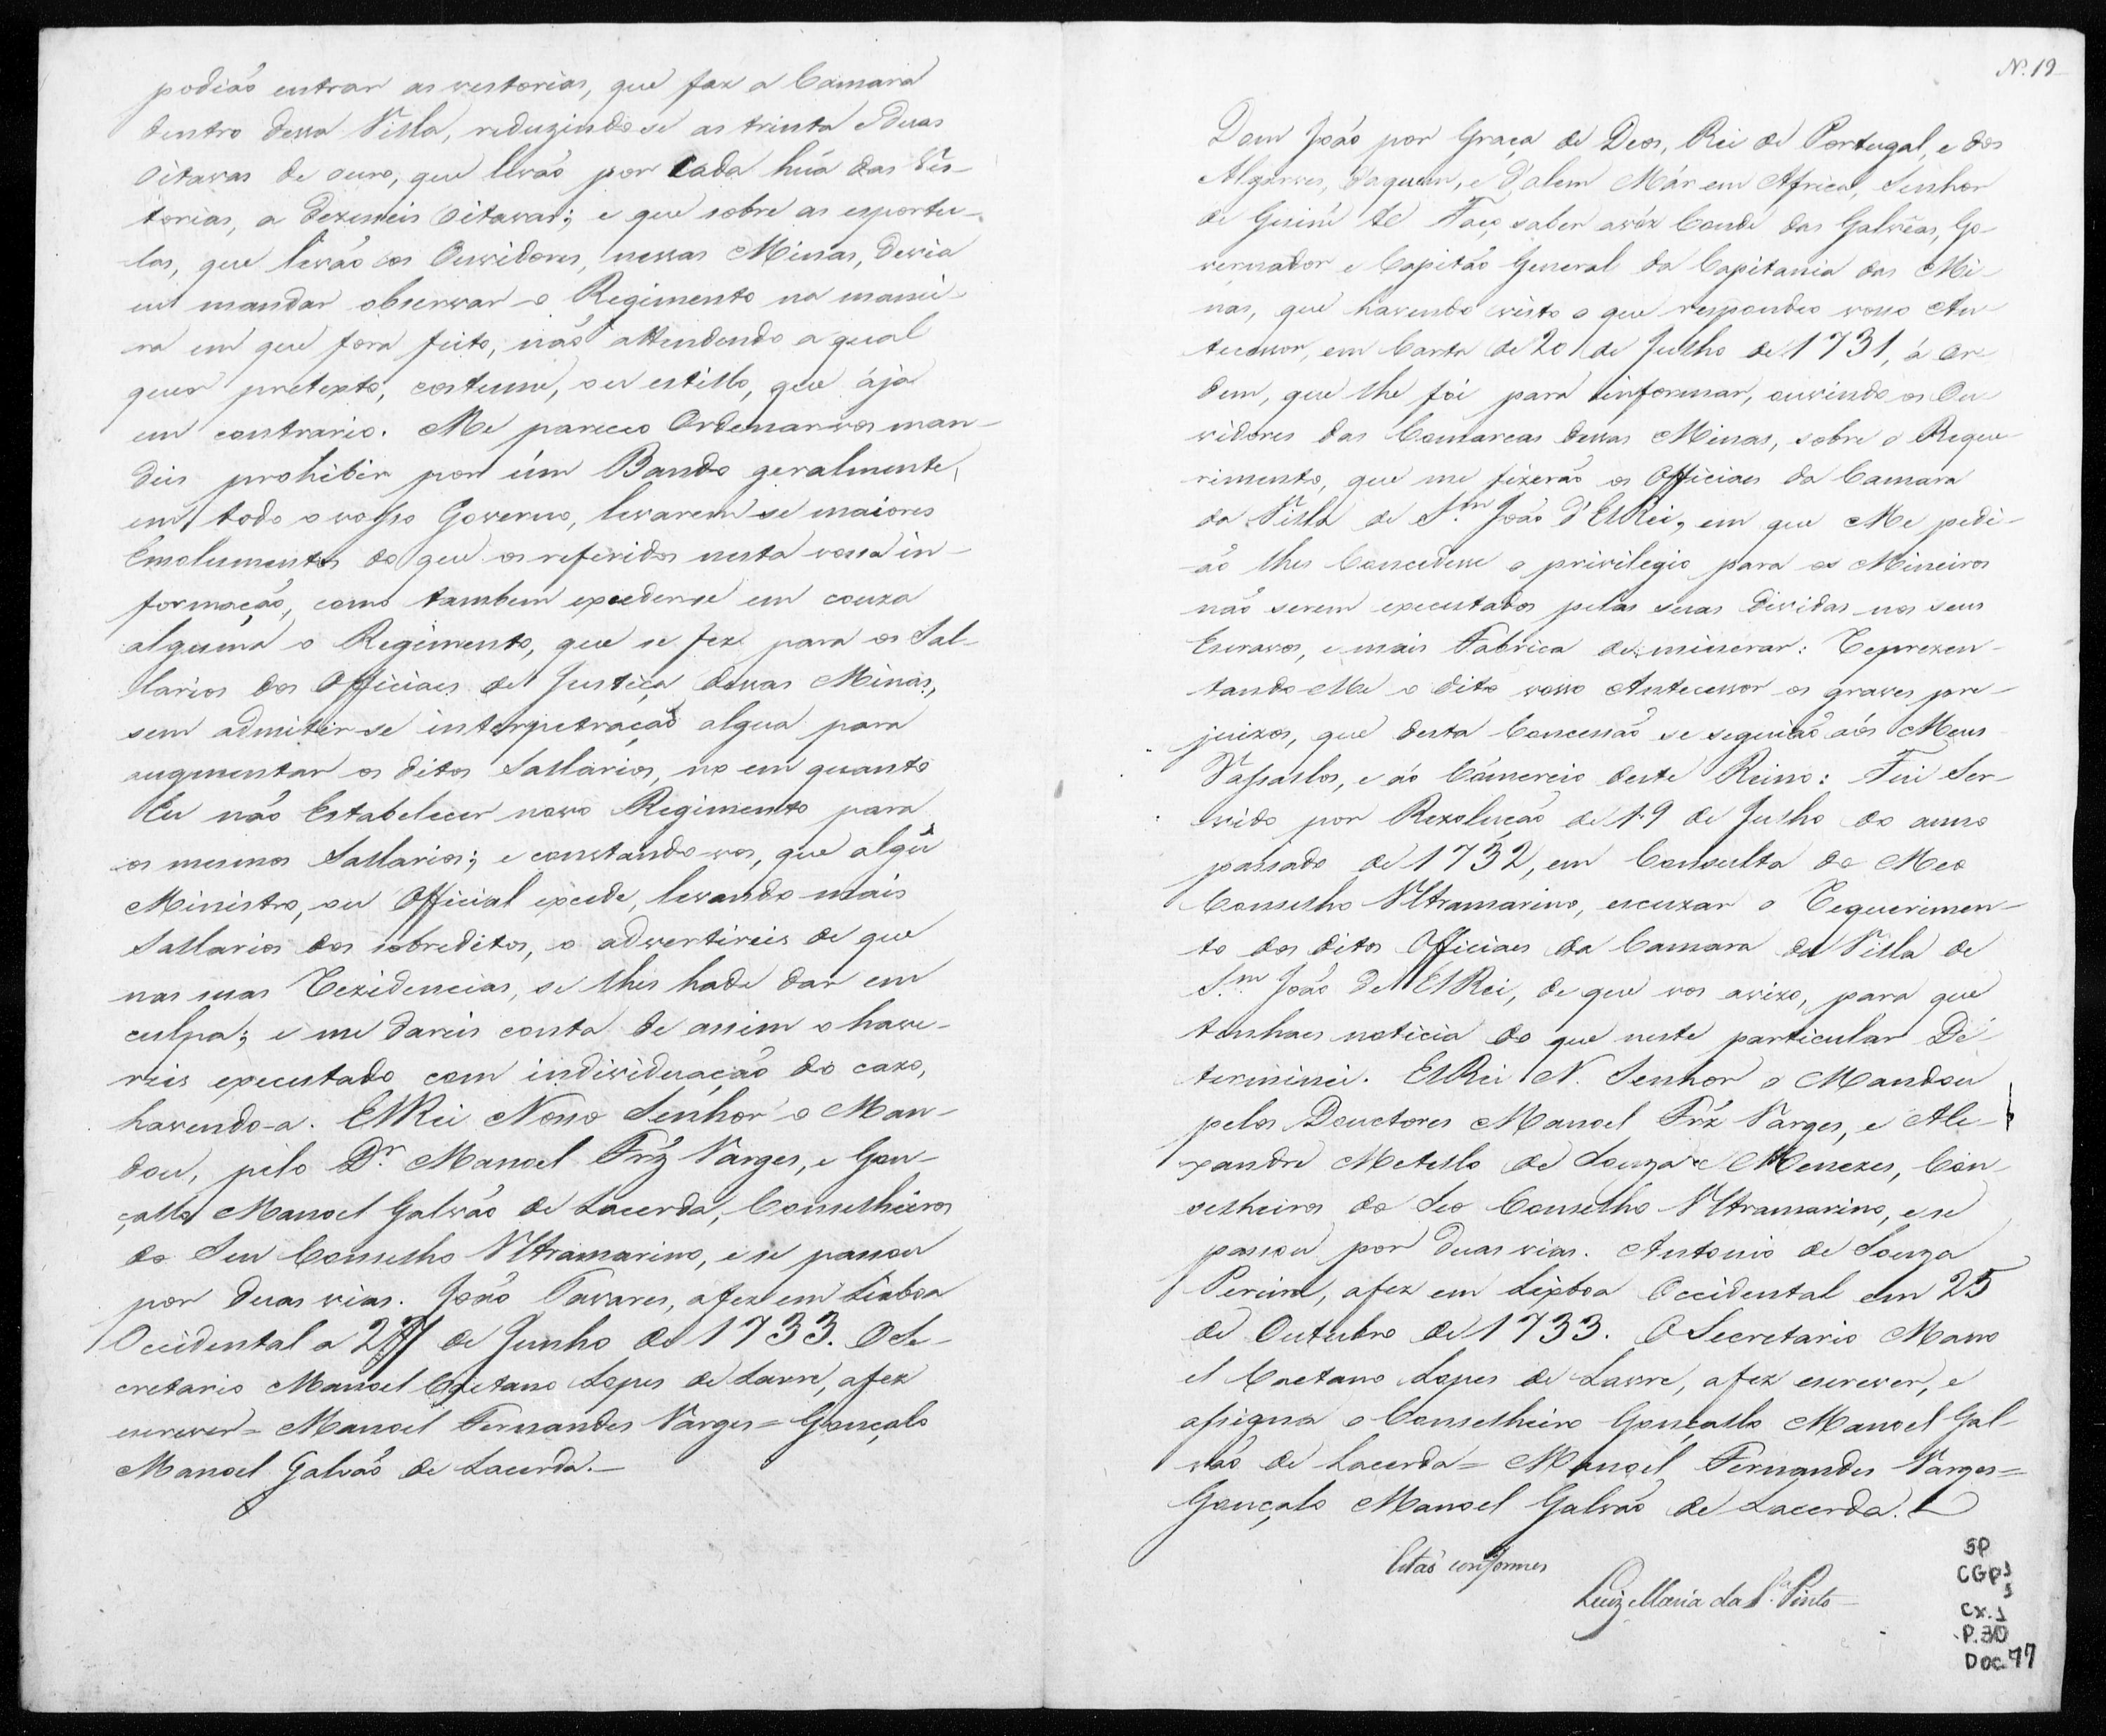 podião entrar as vestorias, que faz a Camara
dentro dessa Villa, reduzindo-se as trinta e duas
oitavas de ouro, que levão por cada hũa das Ves-
torias, a dezeseis oitavas; e que sobre as esportu-
las, que levão os Ouvidores, nessas Minas, devia
eu mandar observar o Regimento na manei-
ra em que fora feito, não attendendo a qual
quer pretexto, costume, ou estillo, que ája
em contrario. Me pareceo Ordenar-vos man-
deis prohibir por úm Bando geralmente,
em todo o vosso Governo, levarem-se maiores
Emolumentos do que os referidos nesta vossa in-
formação, como tambem exceder-se em couza
alguma o Regimento, que se fez para os Sal-
larios dos Officiaes de Justiça dessas Minas,
sem admitir-se interpretração algua para
augmentar os ditos Sallarios, no em quanto
Eu não Estabelecer novo Regimento para
os mesmos Sallarios; e constando-vos, que algũ
Ministro, ou Official excede, levando mais
Sallarios dos sobreditos, o advertireis de que
nas suas Rezidencias, se lhes hade dar em
culpa; e me dareis conta de assim o have-
reis executado com individuação do cazo,
havendo-a. ElRei Nosso Senhor o Man-
dou, pelo Dr. Manoel Frz Varges, e Gon-
çallo Manoel Galvão de Lacerda, Conselheiros
do Seu Conselho Ultramarino, e se passou
por duas vias. João Tavares, a fez em Lisboa
Occidental a 27 de Junho de 1733. O Se-
cretario Manoel Caetano Lopes de Lavre, a fez
escrever = Manoel Fernandes Varges = Gonçalo
Manoel Galvão de Lacerda.—
Nº. 19
Dom João por Graça de Deos, Rei de Portugal, e dos
Algarves, d'aquem, e d'alem Már em Africa, Senhor
de Guiné &c Faço saber avóz Conde das Galvêas, Go-
vernador e Capitão General da Capitania das Mi-
nas, que havendo visto o que respondeo vosso An-
tecessor, em Carta de 20 de Julho de 1731, á or-
dem, que lhe foi para informar, ouvindo os Ou-
vidores das Comarcas dessas Minas, sobre o Reque-
rimento, que me fizerão os Officiaes da Camara
da Villa de S.m João d'ElRei, em que Me pedi-
ão lhes Concedesse o privilegio para os Mineiros
não serem executados pelas suas dividas nos seus
Escravos, e mais Fabrica de minerar: Reprezen-
tando-Me o dito vosso Antecessor os graves pre-
juizos, que desta Concessão se seguião aós Meus
Vassallos, e áo Cómercio deste Reino: Fui Ser-
vido por Rezolução de 19 de Julho do anno
passado de 1732, em Consulta do Meo
Conselho Ultramarino, escuzar o Requerimen-
to dos ditos Officiaes da Camara da Villa de
S.m João de ElRei, de que vos avizo, para que
tenhaes noticia do que neste particular De-
terminei. ElRei N. Senhor o Mandou
pelos Douctores Manoel Frz Varges, e Ale-
xandre Metello de Souza e Menezes, Con-
selheiros do Seo Conselho Ultramarino, e se
passou por duas vias. Antonio de Souza
Pereira, a fez em Lixboa Occidental em 25
de Outubro de 1733. O Secretario Mano
el Caetano Lopes de Lavre, a fez escrever, e
assigna o Conselheiro Gonçallo Manoel Gal-
vão de Lacerda = Manoel Fernandes Varges =
Gonçalo Manoel Galvão de Lacerda.
Estão conformes
Luiz Maria da S.a Pinto
SP
CGP1
1
CX.1
P.30
DOC.77